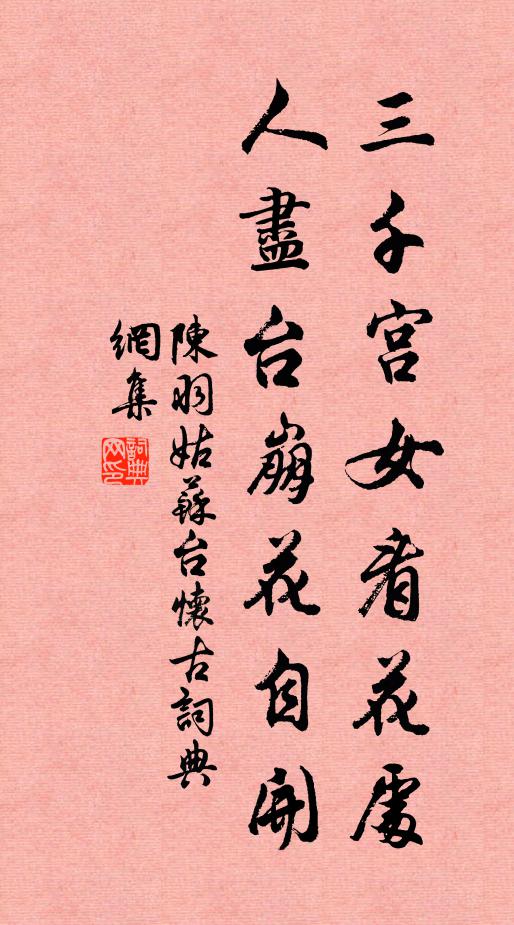 三千宮女看花處
人盡台崩花自開
陳羽姑蘇台懷古詞典
網集
詞典
网印